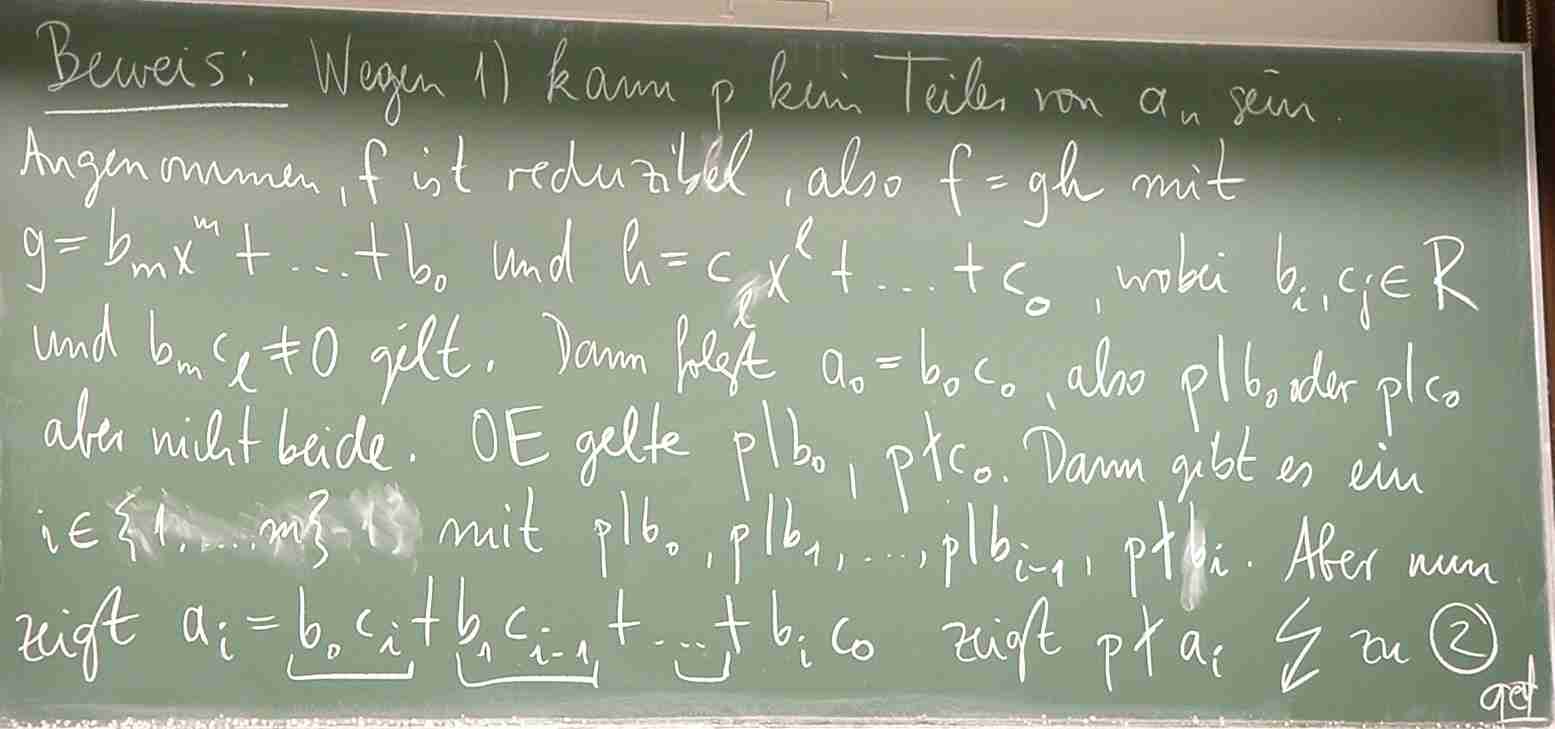 Beweis: Wegen 1) kann p kein Teiler von aₙ sein.
Angenommen, f ist reduzibel, also f = gh mit
g = bₘxᵐ + ... + b₀ und h = cₗxˡ + ... + c₀, wobei bᵢ, cⱼ ∈ R
und bₘcₗ ≠ 0 gilt. Dann folgt a₀ = b₀c₀, also p|b₀ oder p|c₀
aber nicht beide. OE gelte p|b₀, p∤c₀. Dann gibt es ein
i ∈ {1, ..., m} mit p|b₀, p|b₁, ..., p|bᵢ₋₁, p∤bᵢ. Aber nun
zeigt aᵢ = b₀cᵢ + b₁cᵢ₋₁ + ... + bᵢc₀ zeigt p∤aᵢ ↯ zu ②
qed